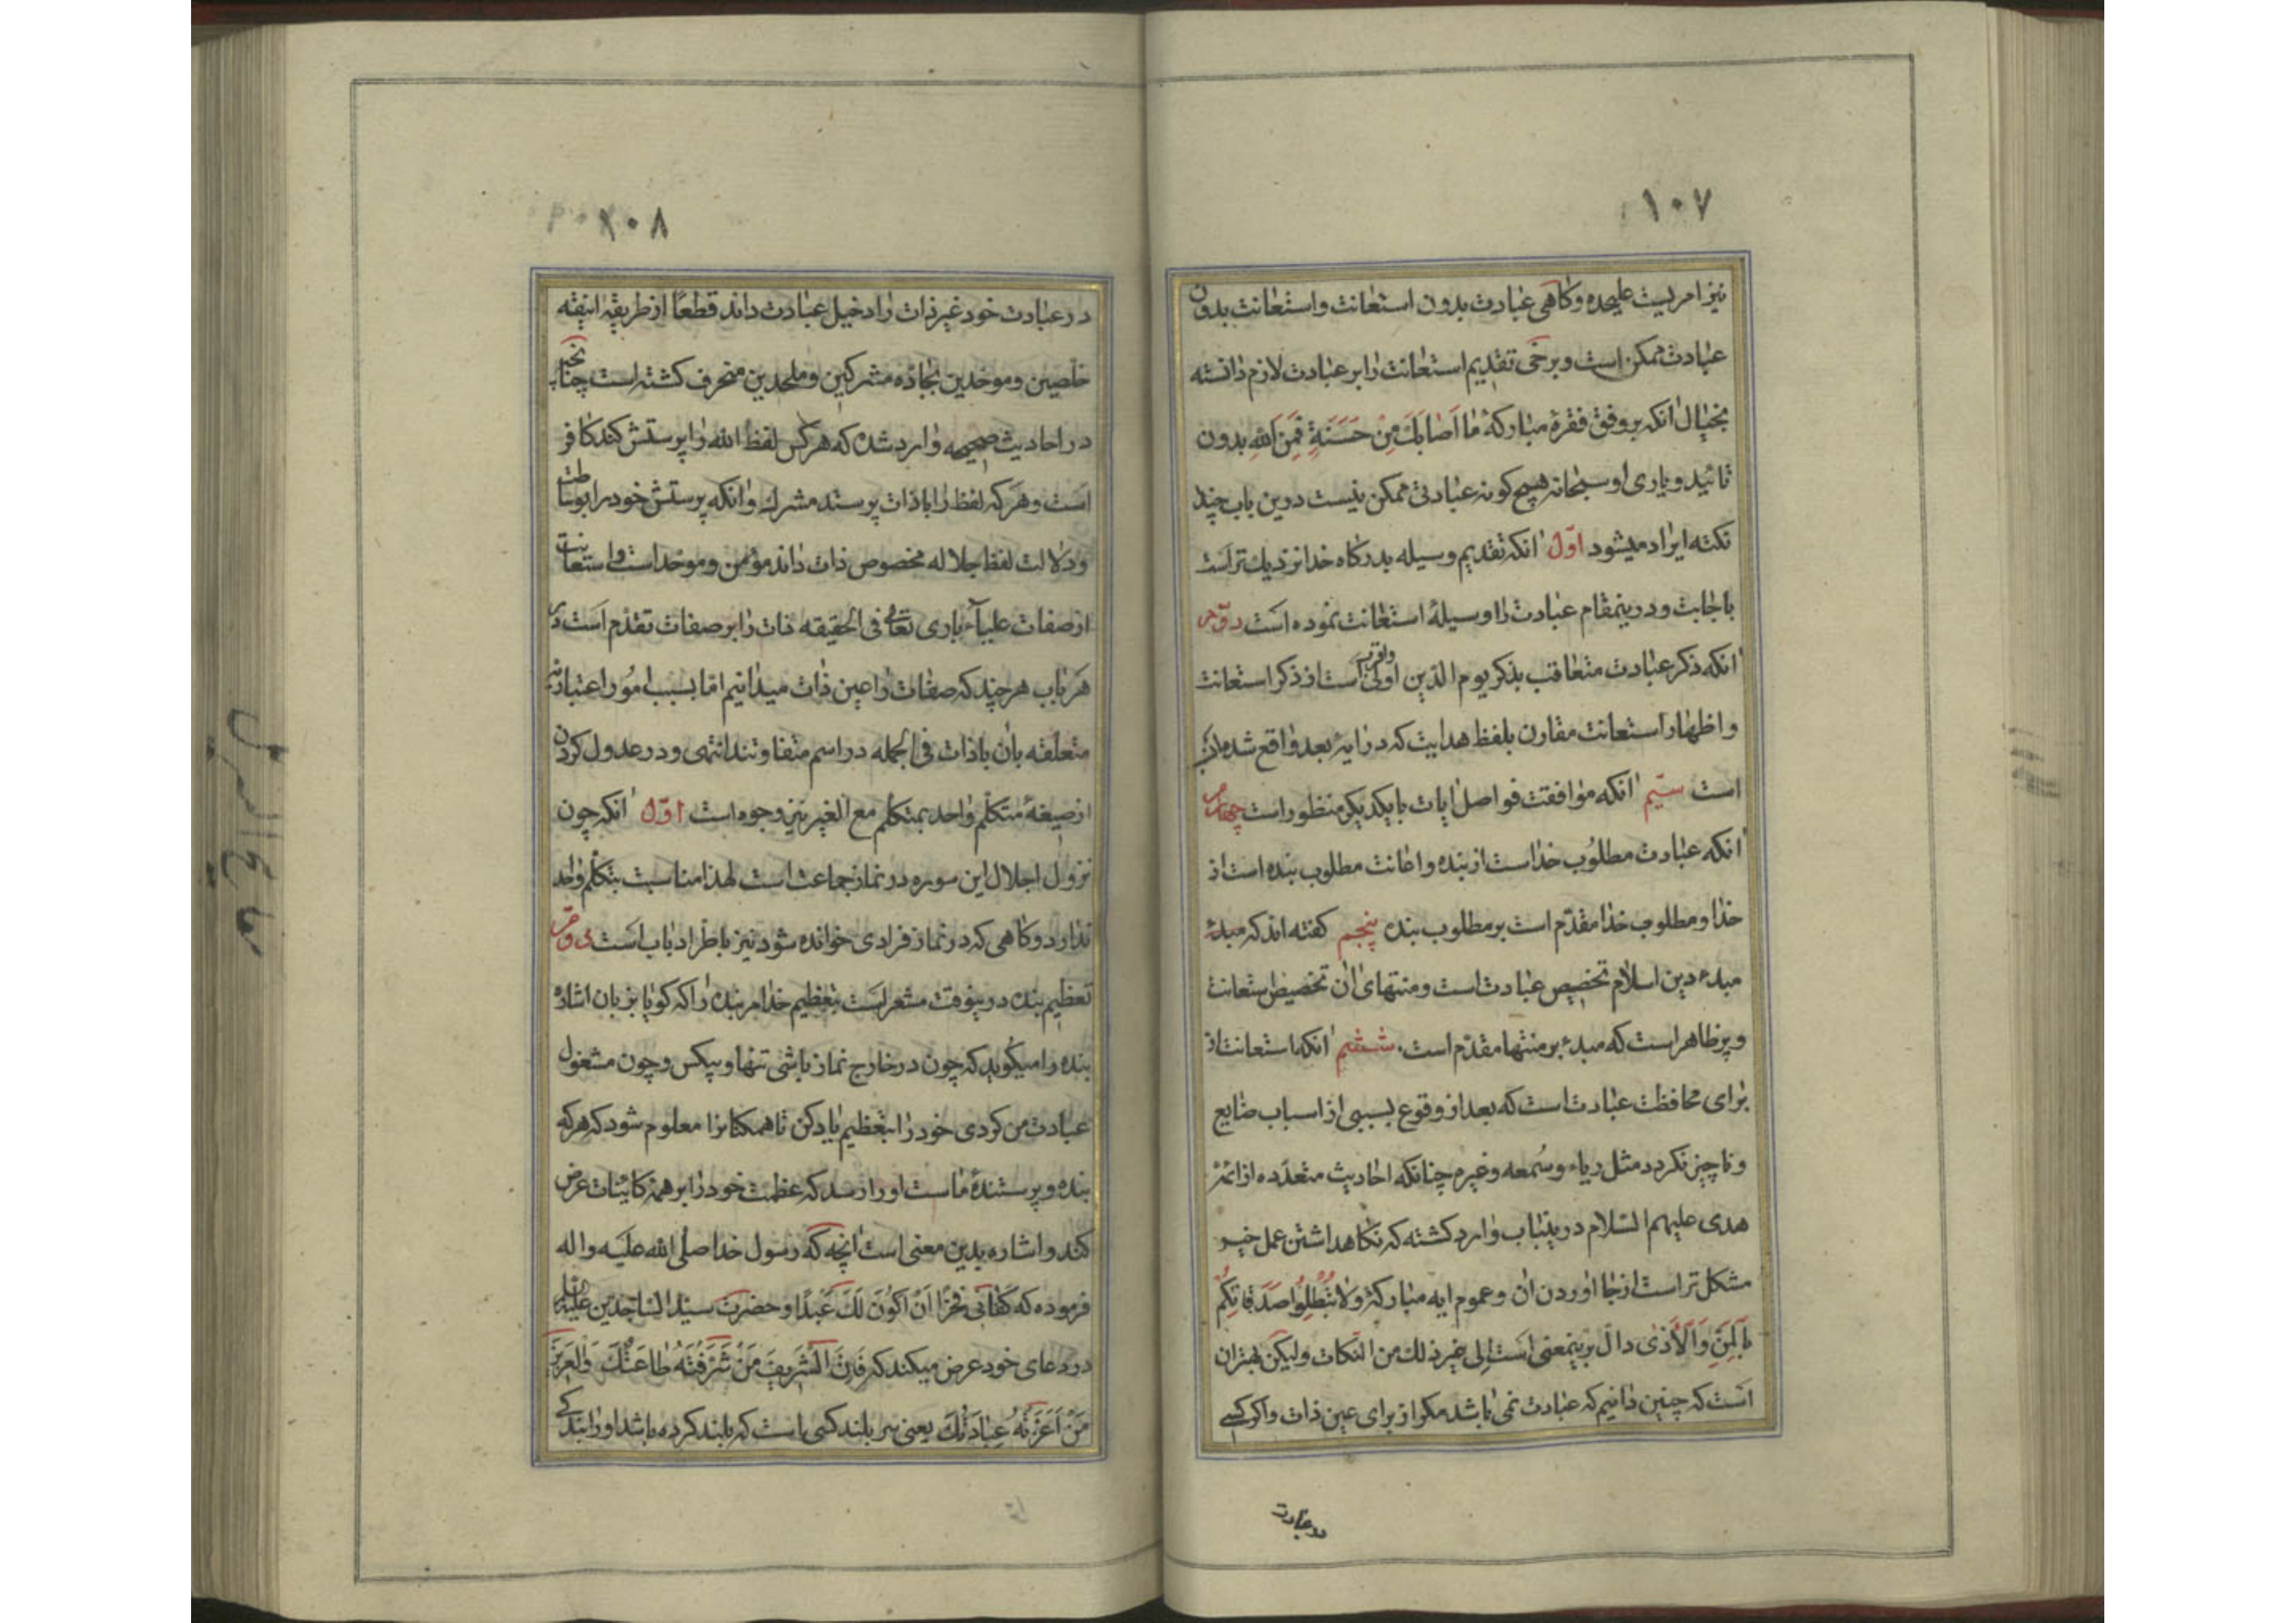 ۱۰۷
نیز امریست علیحده و کاهی عبادت بدون استعانت و استعانت بدون
عبادت ممکن است و برخی تقدیم استعانت را بر عبادت لازم دانسته
بخیال انکه بر وفق فقرهٔ مبارکهٔ مَا اَصَابَكَ مِنْ حَسَنَةٍ فَمِنَ اللهِ بدون
تائید و یاری او سبحانه هیچ کونه عبادتی ممکن نیست درین باب چند
نکته ایراد میشود اوّل انکه تقدیم وسیله بدرکاه خدا نزدیك تر است
باجابت و درینمقام عبادت را وسیلهٔ استعانت نموده است دوّم
انکه ذکر عبادت متعاقب بذکر یوم الدین اولی واقرب است از ذکر استعانت
و اظهار استعانت مقارن بلفظ هدایت که در ایهٔ بعد واقع شده
است سیّم انکه موافقت فواصل ایات با یکدیکر منظور است چهارم
انکه عبادت مطلوب خداست از بنده و اعانت مطلوب بنده است از
خدا و مطلوب خدا مقدّم است بر مطلوب بنده پنجم کفته اند که مبدء
مبدء دین اسلام تخصیص عبادت است و منتهای ان تخصیص استعانت
و پر ظاهر است که مبدء بر منتها مقدّم است ششم انکه استعانت از
برای محافظت عبادت است که بعد از وقوع بسببی از اسباب ضایع
و ناچیز نکردد مثل ریاء و سُمعه و غیره چنانکه احادیث متعدّده از ائمّهٔ
هدی علیهم السّلام در ینباب وارد کشته که نکاهداشتن عمل خیر
مشکل تر است از بجا اوردن ان و عموم ایه مبارکهٔ وَلَا تُبْطِلُوا صَدَقَاتِكُمْ
بِالْمَنِّ وَالْاَذٰی دالّ بر ینمعنی است اِلی غیر ذلك من النکات ولیکن بهتر ان
است که چنین دانیم که عبادت نمی باشد مکر از برای عین ذات و اکر کسی
در عبادت
۱۰۸
در عبادت خود غیر ذات را دخیل عبادت داند قطعًا از طریقهٔ انیقه
خلّصین و موحّدین بجادّه مشرکین و ملحدین منحرف کشته است چنانچه
در احادیث صحیحه وارد شده که هر کس لفظ الله را پرستش کند کافر
است و هر که لفظ را با ذات پرستد مشرك و انکه پرستش خود را بوساطت
و دلالت لفظ جلاله مخصوص ذات داند مؤمن و موحّد است و استعانت
از صفات علیآء باری تعالی فی الحقیقه ذات را بر صفات تقدّم است در
هر باب هر چند که صفات را عین ذات میدانیم امّا بسبب امُور اعتباریّهٔ
متعلّقه بان با ذات فی الجمله در اسم متفاوتند انتهی و در عدول کردن
از صیغهٔ متکلّم واحد بمتکلّم مع الغیر نیز وجوه است اوّل انکه چون
نزول اجلال این سوره در نماز جماعت است لهذا مناسبت بتکلّم واحد
ندارد و کاهی که در نماز فرادی خوانده شود نیز باطّراد باب است دوّم
تعظیم بنده در ینوقت مشعر است بتعظیم خدا مر بنده را که کویا بزبان اشاره
بنده را میکوید که چون در خارج نماز باشی تنها و بیکس و چون مشغول
عبادت من کردی خود را بتعظیم یاد کن تا همکنانرا معلوم شود که هر که
بنده و پرستندهٔ ماست او را رسد که عظمت خود را بر همهٔ کاینات عرض
کند و اشاره بدین معنی است انچه که رسول خدا صلّی الله علیه و اله
فرموده که کَفَانی فَخْرًا اَنْ اَکُونَ لَكَ عَبْدًا و حضرت سیّد السّاجدین علیه السلام
در دعای خود عرض میکند که فَاِنَّ الشَّرِیفَ مَنْ شَرَّفَتْهُ طَاعَتُكَ وَالْعَزِیزَ
مَنْ اَعَزَّتْهُ عِبَادَتُكَ یعنی سر بلند کسی است که بلند کرده باشد او را بندکی